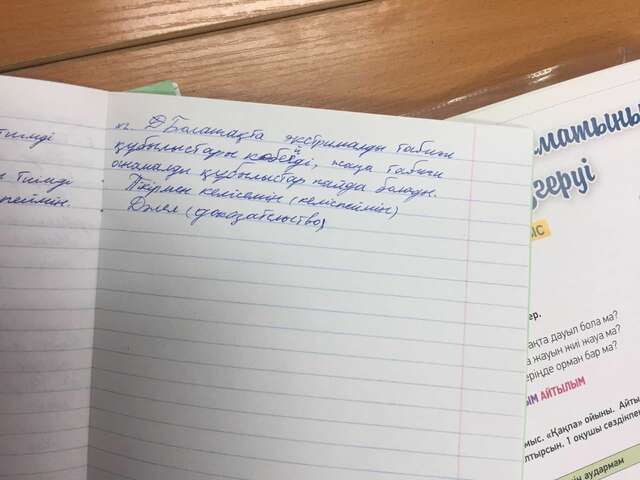 тимді
тимді
пеймін.
Болашақта экстрималды табиғи
құбылыстары көбейді, жаңа табиғи
аномалды құбылыстар пайда болады.
Пікірмен келісемін (келіспеймін)
Дәлел (доказательство)
матының
згеруі
ЫС
ер.
ақта дауыл бола ма?
а жауын жиі жауа ма?
ерінде орман бар ма?
ЫМ АЙТЫЛЫМ
мыс. «Қақпа» ойыны. Айты
лтырсын. 1 оқушы сөздікпен
ін аудармам